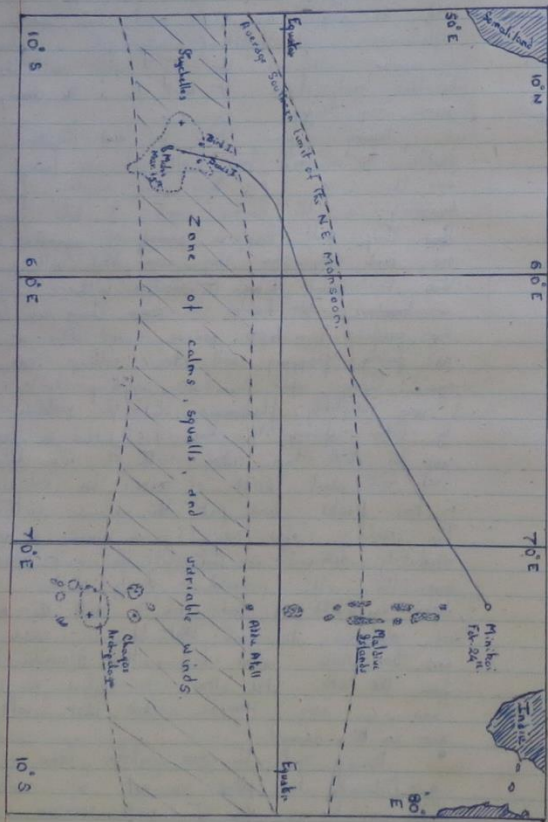 Somaliland
50°E
10°N
Equator
Average Southern limit of the NE Monsoon.
10°S
Seychelles
Bird I.
Mahé
60°E
60°E
Zone of calms, squalls, and variable winds.
70°E
70°E
Minikoi
Feb. 24th.
Maldive
Islands
Addu Atoll
Chagos
Archipelago
India
Equator
10°S
80°
E